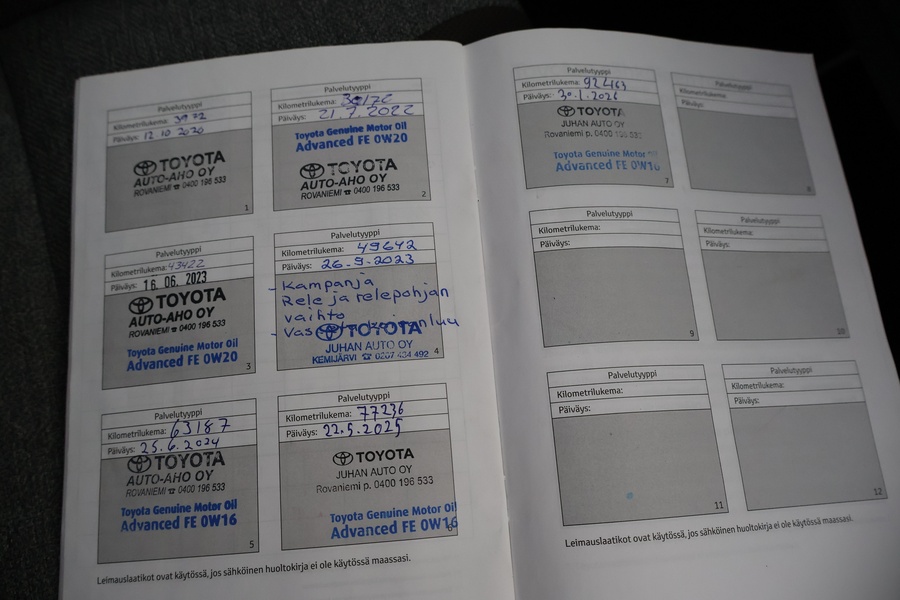 Palvelutyyppi
Kilometrilukema: 3972
Päiväys: 12.10 2020
TOYOTA
AUTO-AHO OY
ROVANIEMI ☎ 0400 196 533
1
Palvelutyyppi
Kilometrilukema:
Päiväys: 21.7.2022
Toyota Genuine Motor Oil
Advanced FE 0W20
TOYOTA
AUTO-AHO OY
ROVANIEMI ☎ 0400 196 533
2
Palvelutyyppi
Kilometrilukema: 43422
Päiväys: 16. 06. 2023
TOYOTA
AUTO-AHO OY
ROVANIEMI ☎ 0400 196 533
Toyota Genuine Motor Oil
Advanced FE 0W20
3
Palvelutyyppi
Kilometrilukema: 49642
Päiväys: 26.9.2023
- Kampanja
Rele ja relepohjan
vaihto
TOYOTA
JUHAN AUTO OY
KEMIJÄRVI ☎ 0207 434 492
4
Palvelutyyppi
Kilometrilukema: 63187
Päiväys: 25.6.2024
TOYOTA
AUTO-AHO OY
ROVANIEMI ☎ 0400 196 533
Toyota Genuine Motor Oil
Advanced FE 0W16
5
Palvelutyyppi
Kilometrilukema: 77236
Päiväys: 22.5.2025
TOYOTA
JUHAN AUTO OY
Rovaniemi p. 0400 196 533
Toyota Genuine Motor Oil
Advanced FE 0W16
6
Leimauslaatikot ovat käytössä, jos sähköinen huoltokirja ei ole käytössä maassasi.
Palvelutyyppi
Kilometrilukema: 92463
Päiväys: 30.1.2026
TOYOTA
JUHAN AUTO OY
Rovaniemi p. 0400
Toyota Genuine Motor
Advanced FE 0W16
7
Palvelutyyppi
Kilometrilukema:
Päiväys:
8
Palvelutyyppi
Kilometrilukema:
Päiväys:
9
Palvelutyyppi
Kilometrilukema:
Päiväys:
10
Palvelutyyppi
Kilometrilukema:
Päiväys:
11
Palvelutyyppi
Kilometrilukema:
Päiväys:
12
Leimauslaatikot ovat käytössä, jos sähköinen huoltokirja ei ole käytössä maassasi.